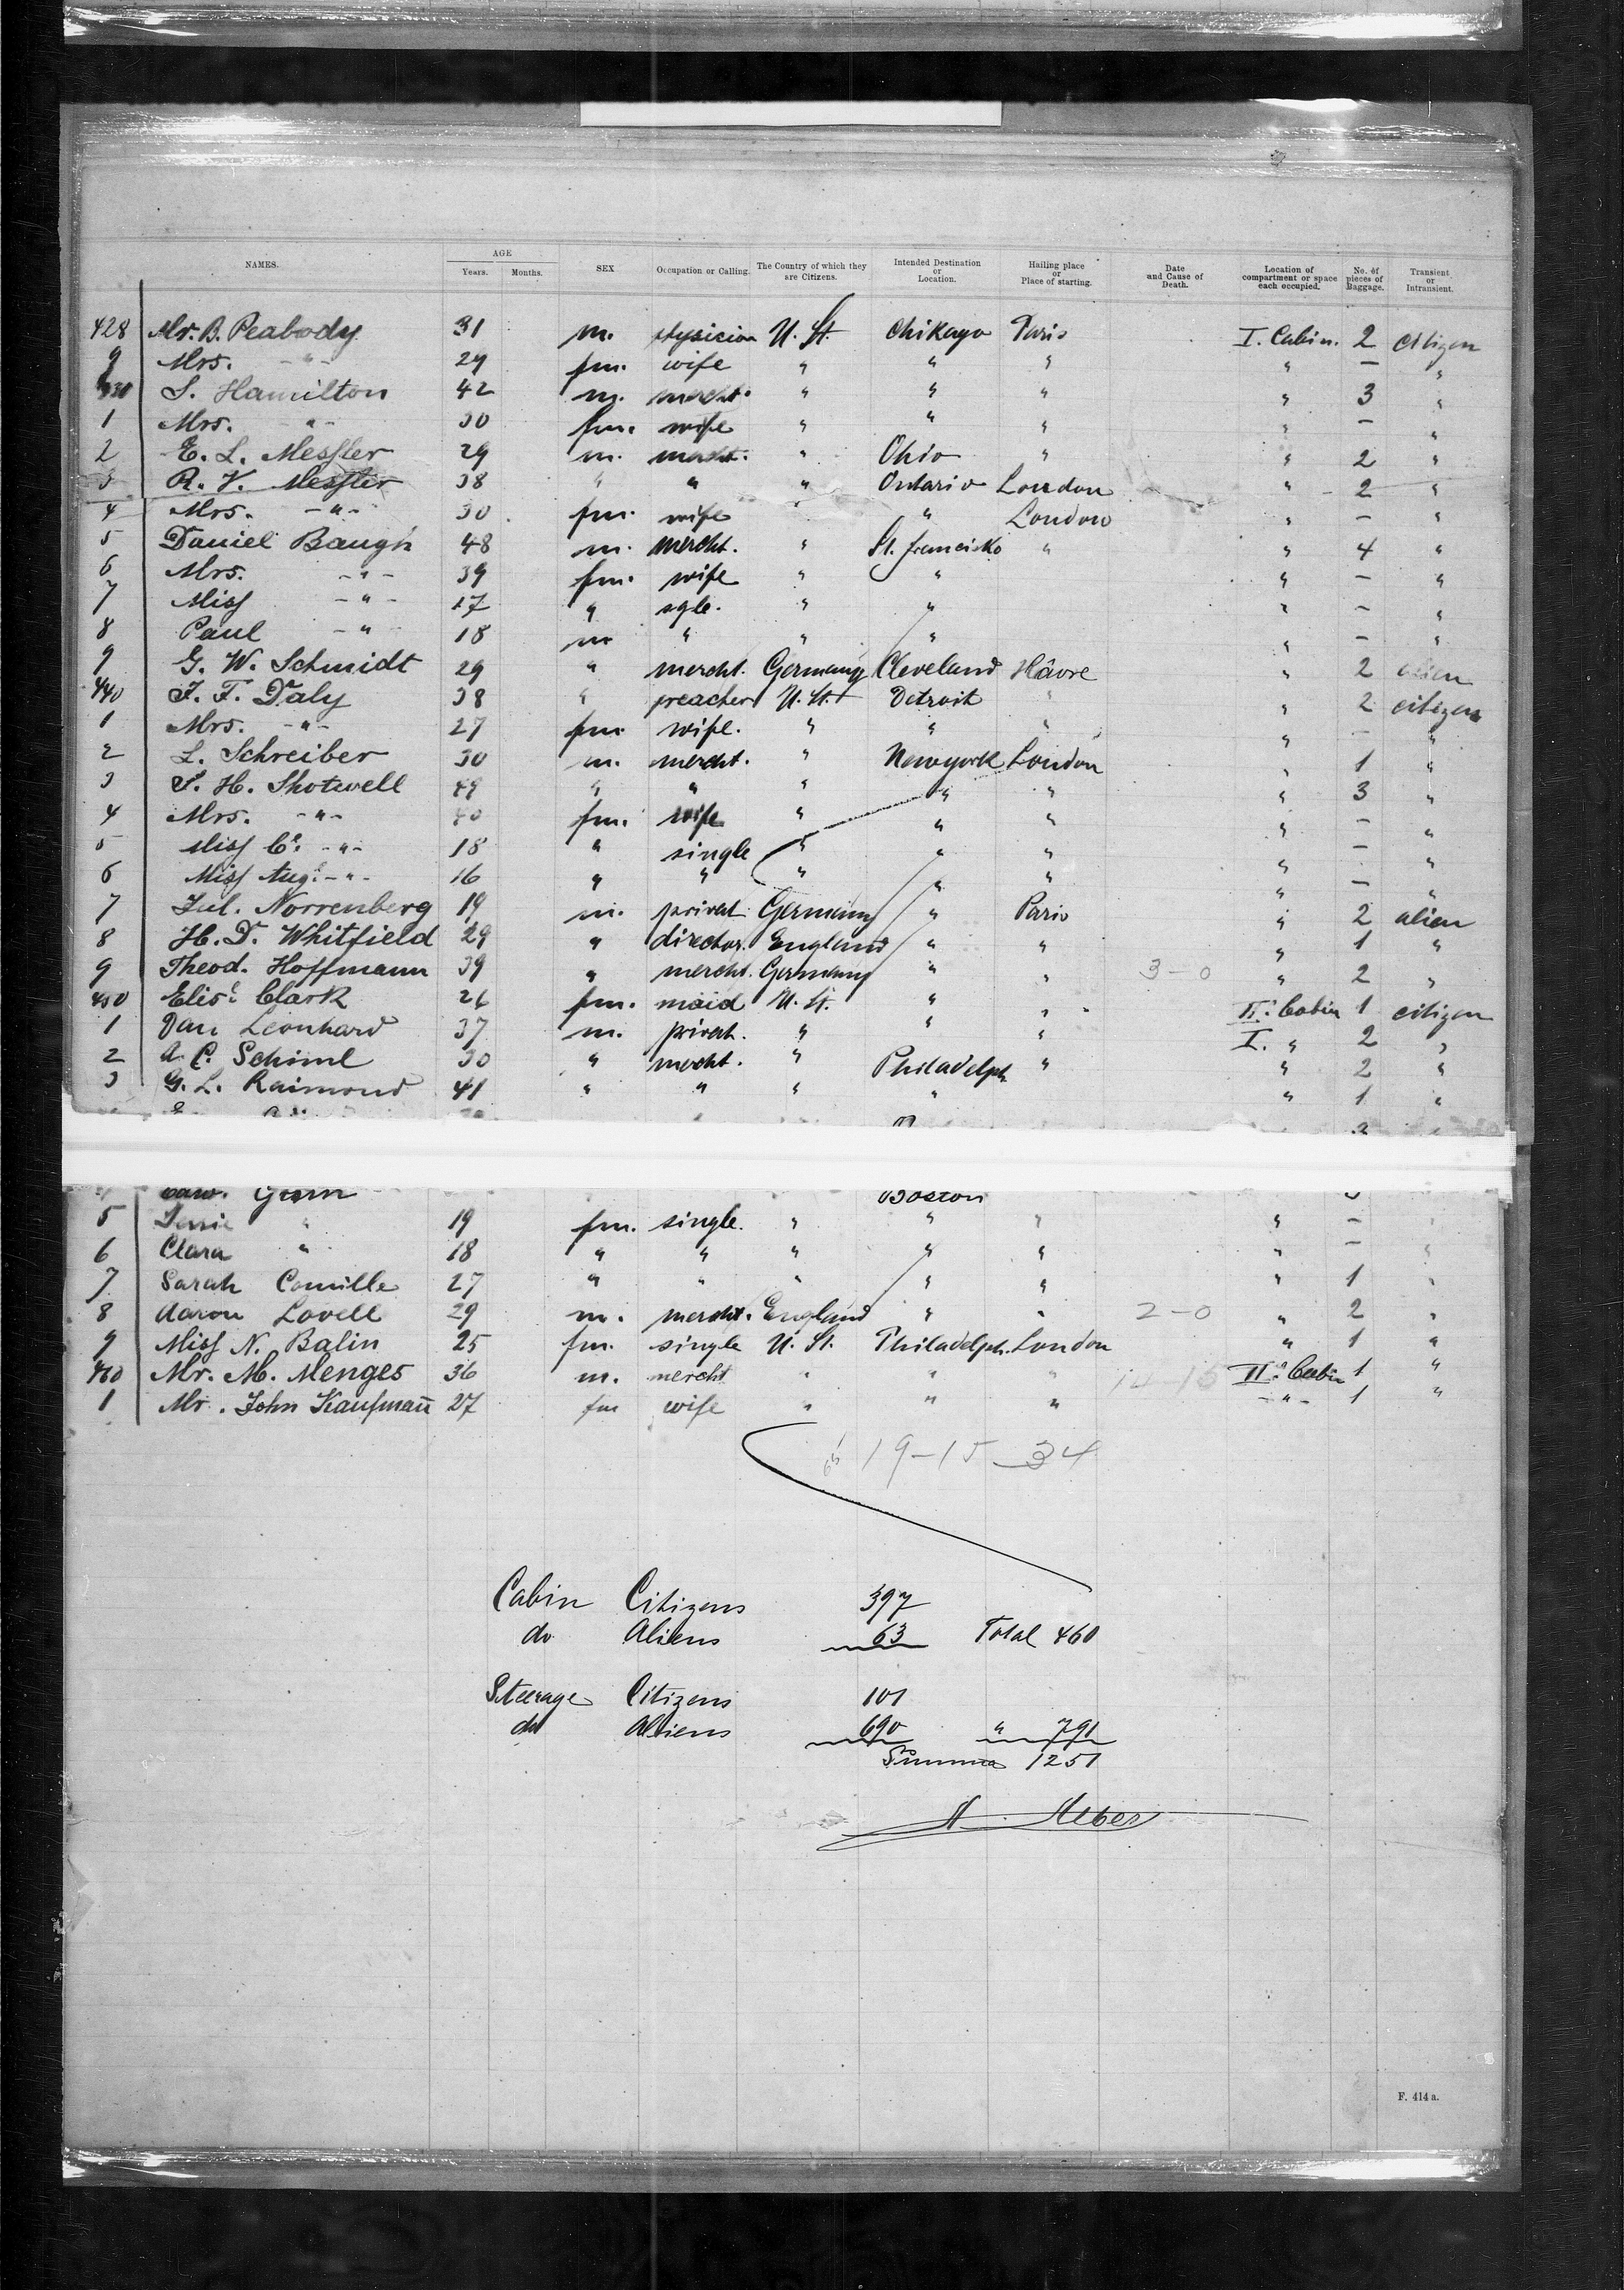 NAMES. AGE Years. Months. SEX Occupation or Calling. The Country of which they are Citizens. Intended Destination or Location. Hailing place or Place of starting. Date and Cause of Death. Location of compartment or space each occupied. No. of pieces of Baggage. Transient or Intransient.
428 Mr. B. Peabody 31 m. physician U. St. Chikago Paris I. Cabin. 2 citizen
9 Mrs. -"- 29 fm. wife " " " " - "
430 S. Hamilton 42 m. mercht. " " " " 3 "
1 Mrs. -"- 30 fm. wife " " " " - "
2 E. L. Messler 29 m. mercht. " Ohio " " 2 "
3 R. V. Messler 38 " " " Ontario London " 2 "
4 Mrs. -"- 30 fm. wife " London " - "
5 Daniel Baugh 48 m. mercht. " St. Francisko " " 4 "
6 Mrs. -"- 39 fm. wife " " " - "
7 Miss -"- 17 " sgle. " " " - "
8 Paul -"- 18 m " " " " - "
9 G. W. Schmidt 29 " mercht. Germany Cleveland Hâvre " 2 alien
440 F. F. Daly 38 " preacher U. St. Detroit " " 2 citizen
1 Mrs. -"- 27 fm. wife. " " " " - "
2 L. Schreiber 30 m. mercht. " Newyork London " 1 "
3 F. H. Shotwell 49 " " " " " " 3 "
4 Mrs. -"- 40 fm. wife " " " " - "
5 Miss C. -"- 18 " single " " " " - "
6 Miss Aug. -"- 16 " " " " " " - "
7 Jul. Norrenberg 19 m. privat. Germany " Paris " 2 alien
8 H. D. Whitfield 29 " director. England " " " 1 "
9 Theod. Hoffmann 39 " mercht. Germany " " 3-0 " 2 "
450 Elis. Clark 26 fm. maid U. St. " " II. Cabin 1 citizen
1 Dan Leonhard 37 m. privat. " " " I. " 2 "
2 A. C. Schiml 30 " mercht. " Philadelph. " " 2 "
3 G. L. Raimond 41 " " " " " 1 "
Boston
5 19 fm. single. " " " " - "
6 Clara " 18 " " " " " " - "
7 Sarah Camille 27 " " " " " " 1 "
8 Aaron Lovell 29 m. mercht. England " " 2-0 " 2 "
9 Miss N. Balin 25 fm. single U. St. Philadelph. London " 1 "
460 Mr. M. Menges 36 m. mercht " " " 14-15 II. Cabin 1 "
1 Mr. John Kaufmann̄ 27 fm wife " " " -"- 1 "
19-15-34
Cabin Citizens 397
do Aliens 63 Total 460
Steerage Citizens 101
do Aliens 690 " 791
Summa 1251
F. 414 a.